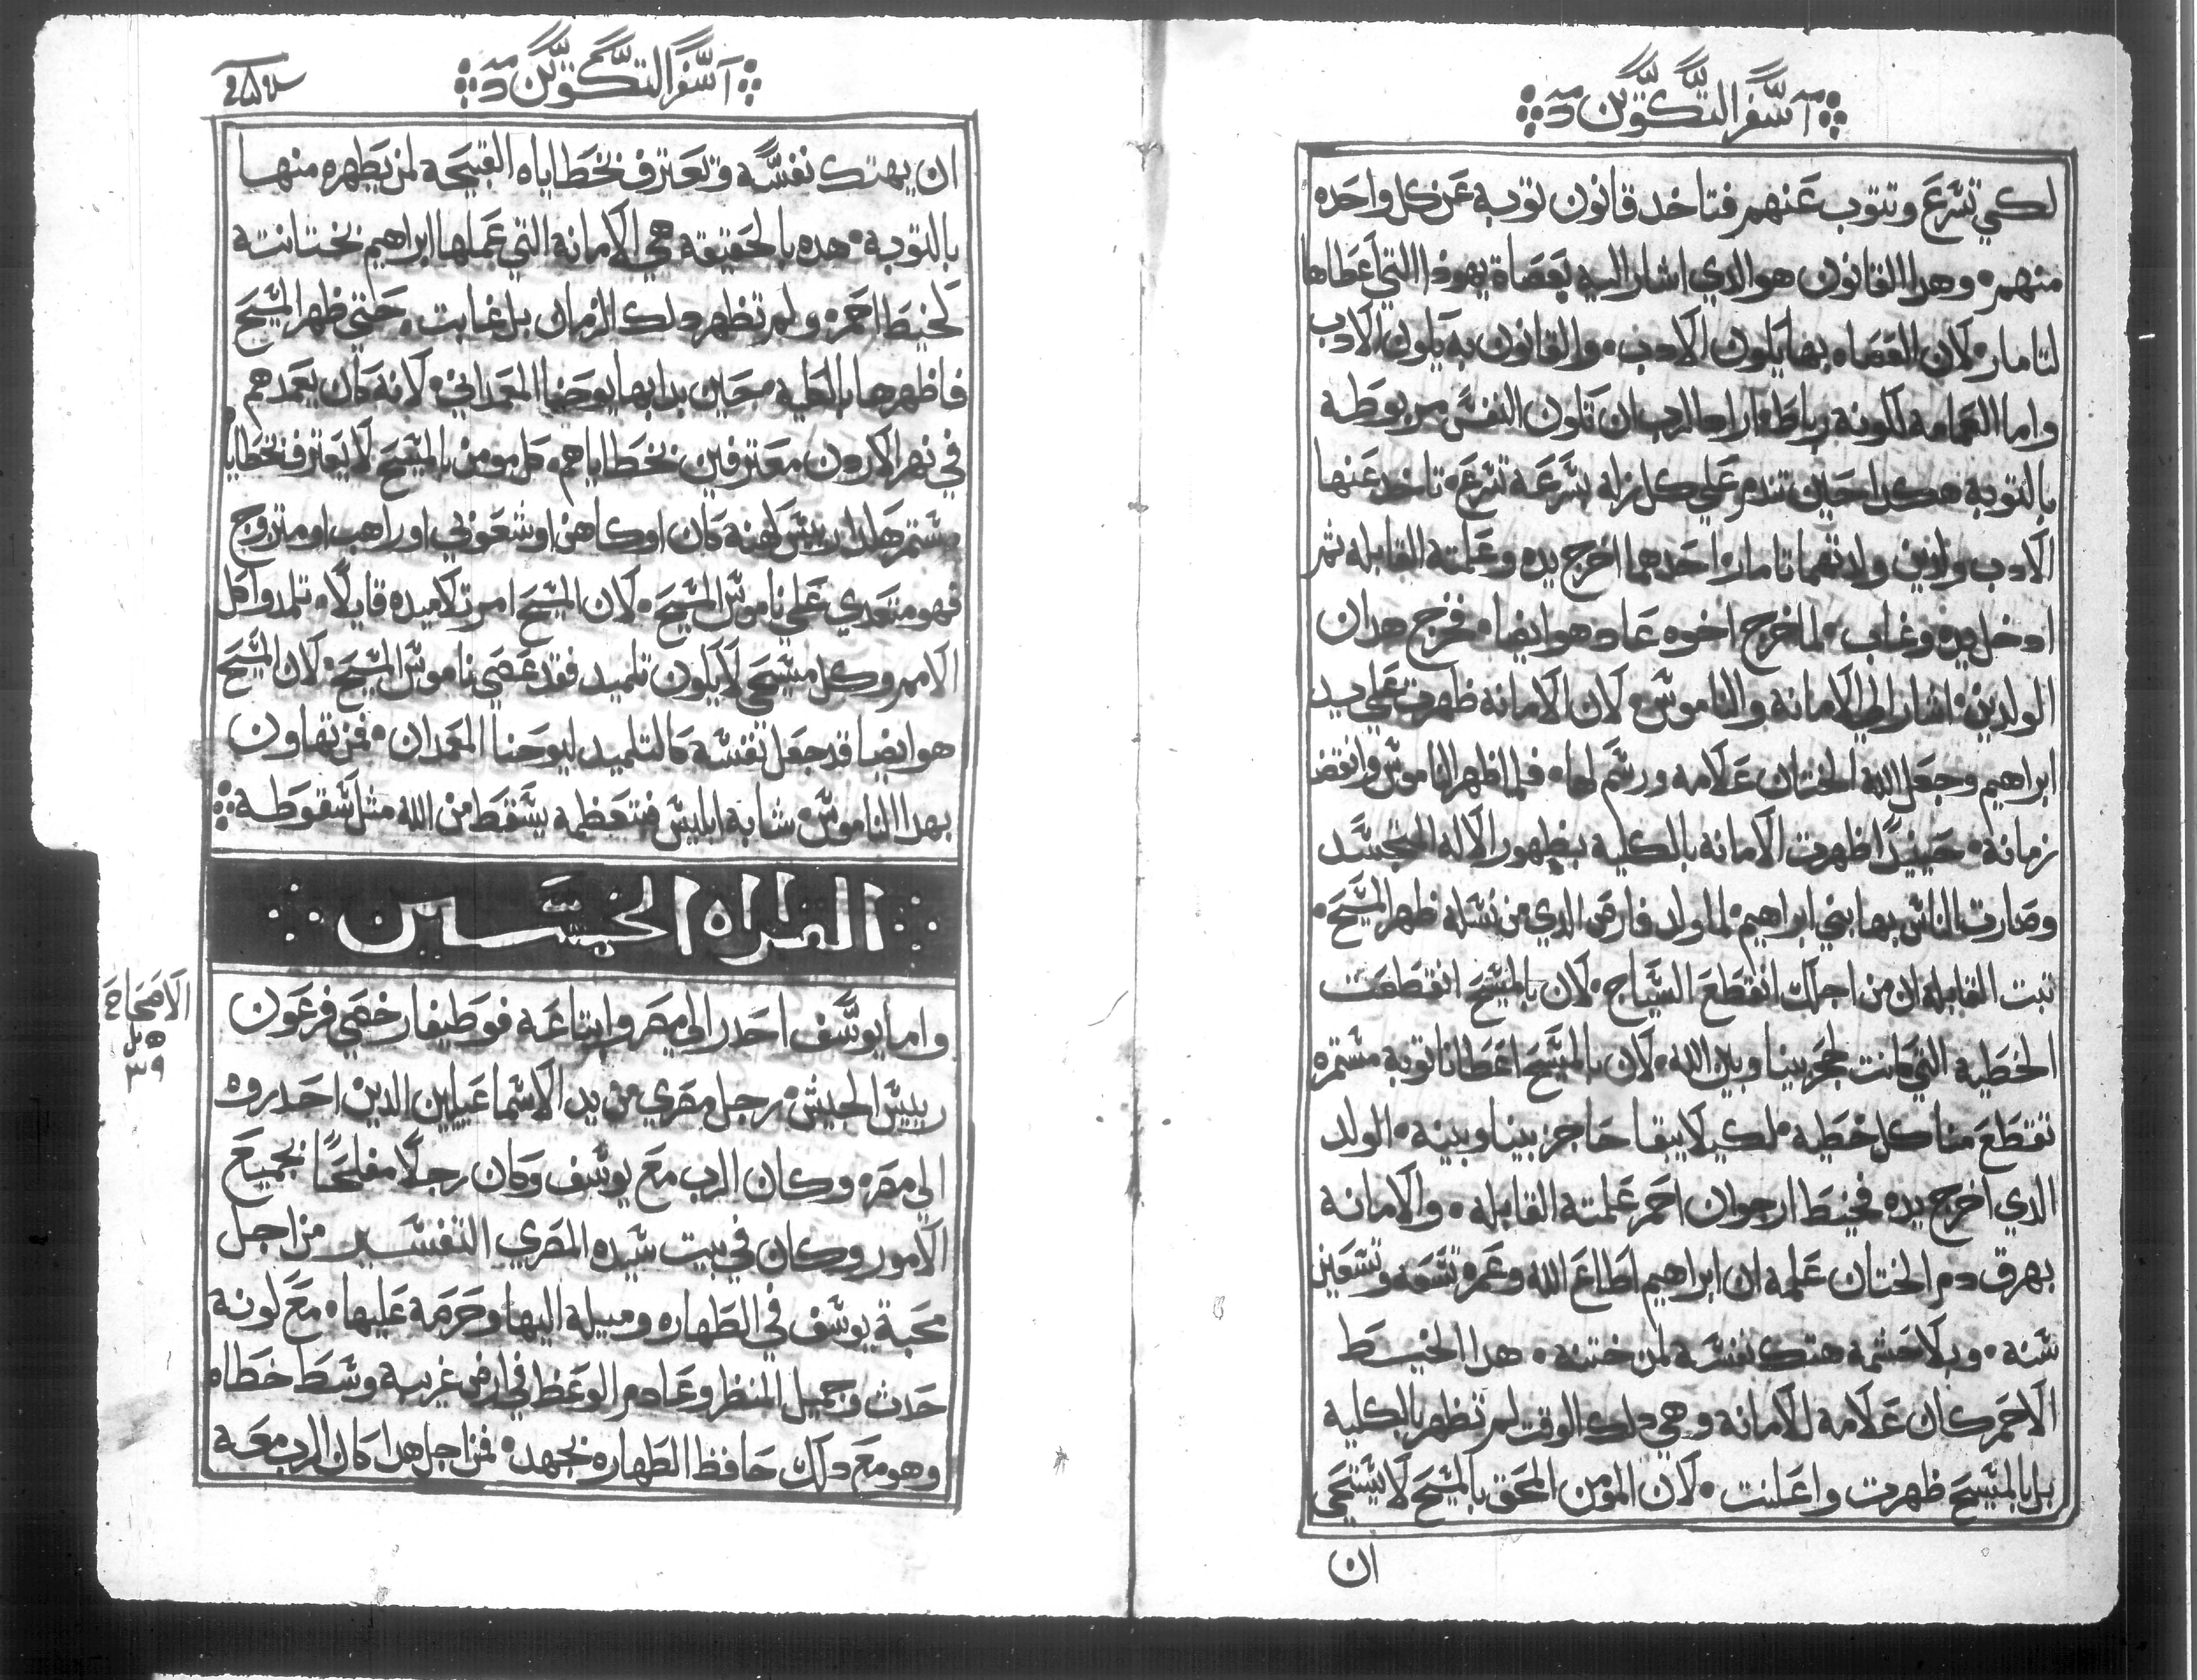 اسفر التكوين
لكي تسرع وتتوب عنهم فتاخد قانون توبه عن كل واحده
منهم، وهدا القانون هو الدي اشار اليه بعصاة يهودا التي اعطاها
لتامار، لان العصاه بها يكون الادب، والقانون به يكون الادب
واما العمامه لكونه رباط، اراد الرب ان تكون النفس مربوطه
بالتوبه هكدا حين تندم علي كل زله بسرعة تسرع، تاخد عنها
الادب ولدين ولدتهما تامار، احدهما اخرج يده وعلمته القابله تم
ادخل يده وغاب، لما خرج اخوه عاد هو ايضا، فخرج هدان
الولدين، اشار الي الامانه والناموس، لان الامانه ظهرت علي يد
ابراهيم وجعل الله الختان علامه ورسم لها، فلما ظهر الناموس وانقضا
زمانة، حينيدًا ظهرت الامانه بالكليه بظهور الاله المتجسد
وصارت الناس بها بني ابراهيم، لما ولد فارص الدي من نسله ظهر المسيح،
تبت القابله ان من اجلك انقطع السياج، لان بالمسيح انقطعت
الخطيه التي كانت تحجز بيننا وبين الله، لان بالمسيح اعطانا توبة مستمره
تقطع منا كل خطيه، لكيلا يبقا حاجز بيننا وبينه، الولد
الدي اخرج يده فخيط ارجوان احمر علمتة القابله، والامانه
بهرق دم الختان علمه ان ابراهيم اطاع الله وعمره تسعه وتسعين
سنه، وبلا حشمه هتك نفسه لمن ختنه، هدا الخيط
الاحمر كان علامه للامانه وهي دلك الوقت لم تظهر بالكليه
بل بالمسيح ظهرت واعلنت، لان المومن المحق بالمسيح لا يستحي
ان
اسفر التكوين
ان يهتك نفسه وتعترف بخطاياه القبيحه لمن يطهره منها
بالتوبه، هده بالحقيقة هي الامانه التي عملها ابراهيم بختانته
كخيط احمر، ولم تظهر دلك الزمان بل غابت، حتي ظهر المسيح
فاظهرها بالكليه، حين بدا بها يوحنا المعمداني، لانه كان يعمدهم
في نهر الاردن معترفين بخطاياهم، كل مومن بالمسيح لا يعترف بخطايا
مستمر هكدا ان رييس كهنه كان او كاهن او شعوبي او راهب او متزوج
فهو متعدي علي ناموس المسيح، لان المسيح امر تلاميده قايلا، تلمدوا كل
الامم وكل مسيحي لا يكون تلميد فقد عصي ناموس المسيح، لان المسيح
هو ايضا قد جعل نفسه كالتلميد ليوحنا المعمدان، فمن تهاون
بهدا الناموس شابه ابليس فتعظمه يسقط من الله مثل سقوطه
القراه الخمسين
الاصحاح
٣٩
واما يوسف احدر الي مصر وابتاعه فوطيفار خصي فرعون
رييس الجيش، رجل مصري من يد الاسماعيليين الدين احدروه
الي مصر، وكان الرب مع يوسف وكان رجلًا مفلحًا بجميع
الامور وكان في بيت سيده المصري التفسير من اجل
محبة يوسف في الطهاره وميله اليها وحرصه عليها، مع كونه
حدث وجميل المنظر وعادم الوعظ في ارض غريبه وسط خطاه
وهو مع دلك حافظ الطهاره بجهد، فمن اجل هدا كان الرب معه